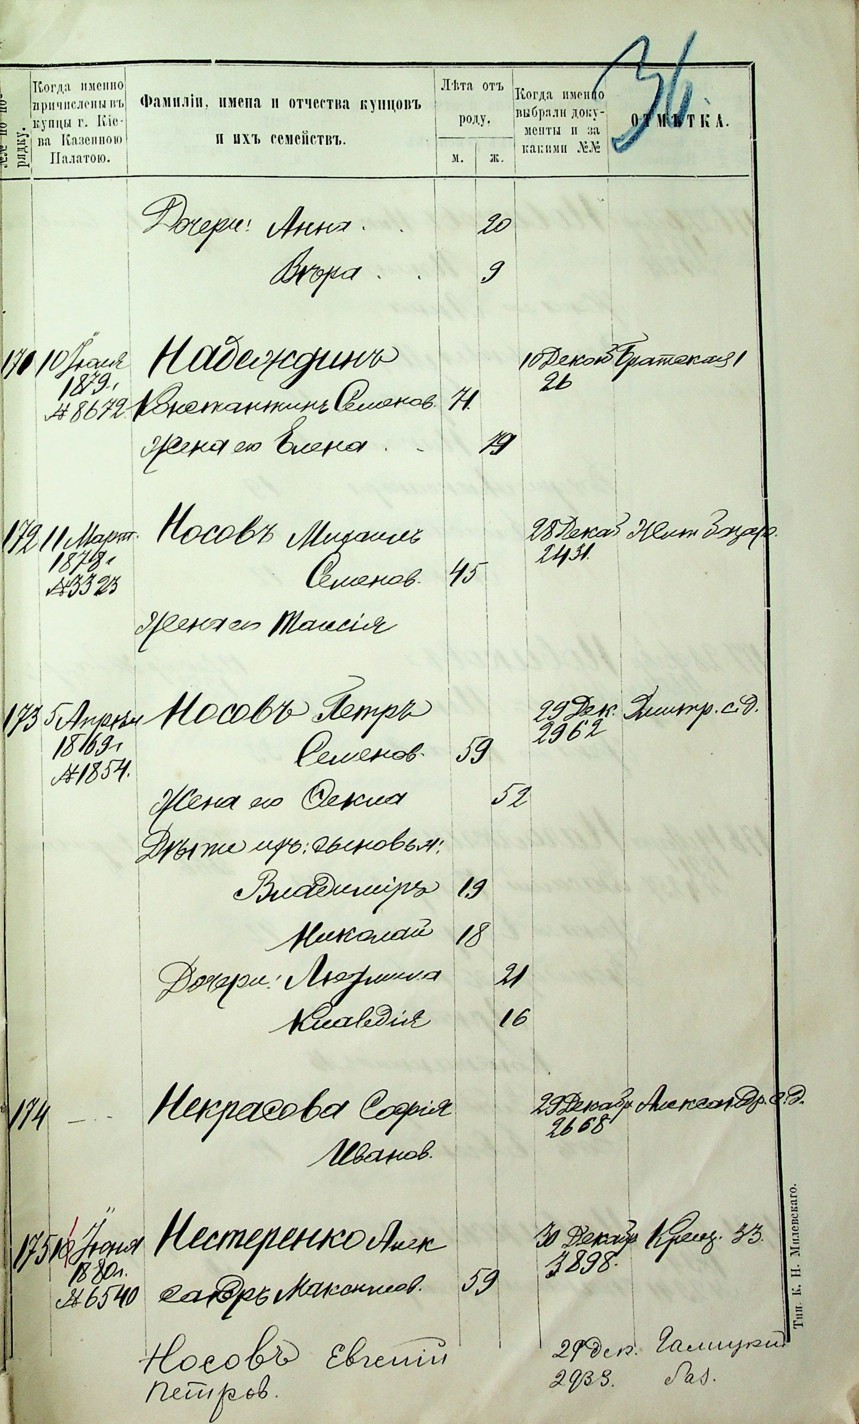 36.
№№ по по-
рядку.
Когда именно
причислены въ
купцы г. Кіе-
ва Казенною
Палатою.
Фамиліи, имена и отчества купцовъ
и ихъ семействъ.
Лѣта отъ
роду.
м. ж.
Когда именно
выбрали доку-
менты и за
какими №№
ОТМѢТКА.
Дочери: Анна . . 20
Вѣра . . 9
171 10 Іюля Надеждинъ 10 Декаб Братская 1
1879 г. 26
№ 8672 Константинъ Семенов. 71.
Жена его Елена . .
172 11 Март. Носовъ Михаилъ 28 Декаб
1878 г. 2431.
№ 3323 Семенов. 45
Жена его Таисія
173 5 Апрѣля Носовъ Петръ 29 Дек. Дмитр. с.д.
1869 г. 2962
№ 1854. Семенов. 59
Жена его Ѳекла 52
Дѣти ихъ: сыновья:
Владиміръ 19
Николай 18
Дочери: Людмила 21
Клавдія 16
174 - - - Некрасова Софія 29 Декабр Александр. с.д.
2668
Иванов.
175 Іюня Нестеренко Алек 30 Декабр Крещ. 33.
1880 г. 3898.
№ 6540 сандръ Максимов. 59
Носовъ Евгеній 29 дек. Галицкій
Петров. 2933. баз.
Тип. К. Н. Милевскаго.